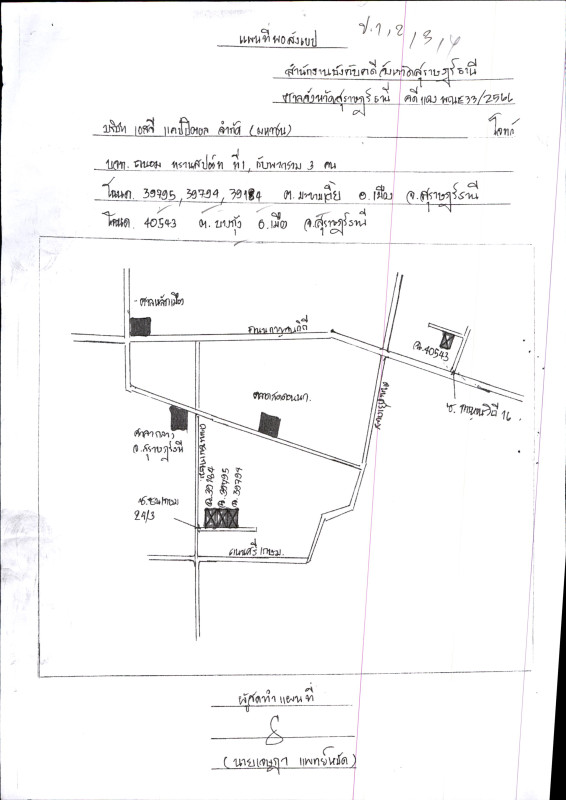 แผนที่พอสังเขป
ป.1, 2 / 3, 4
สำนักงานบังคับคดีจังหวัดสุราษฎร์ธานี
ศาลจังหวัดสุราษฎร์ธานี คดีแดง ผบE33/2566
บริษัท เอสจี แคปปิตอล จำกัด (มหาชน) โจทก์
ทรานสปอร์ต ที่ 1, กับพวกรวม 3 คน
โฉนด. 39795, 39794, 39184 ต. มะขามเตี้ย อ.เมือง จ.สุราษฎร์ธานี
โฉนด. 40543 ต. บางกุ้ง อ.เมือง จ.สุราษฎร์ธานี
ศาลหลักเมือง
ถนนกาญจนวิถี
ฉ. 40543
ซ. กาญจนวิถี 16
ศาลากลาง
จ.สุราษฎร์ธานี
ถนนชนเกษม
ฉ. 39184
ฉ. 39795
ฉ. 39794
ซ.ชนเกษม
24/3
ถนนศรีเกษม.
ผู้จัดทำแผนที่
(นายเจษฎา แพทย์หมัด)